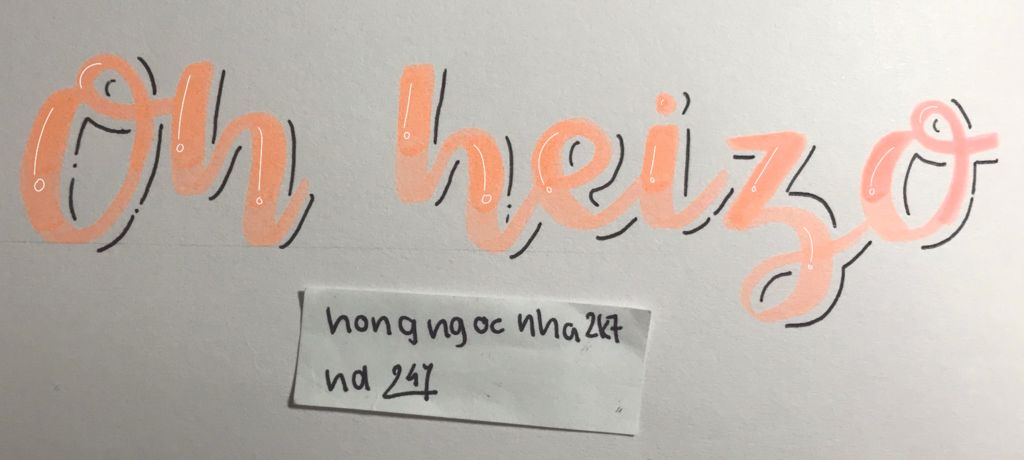 Oh heizo
hongngoc nha2k7
na 247